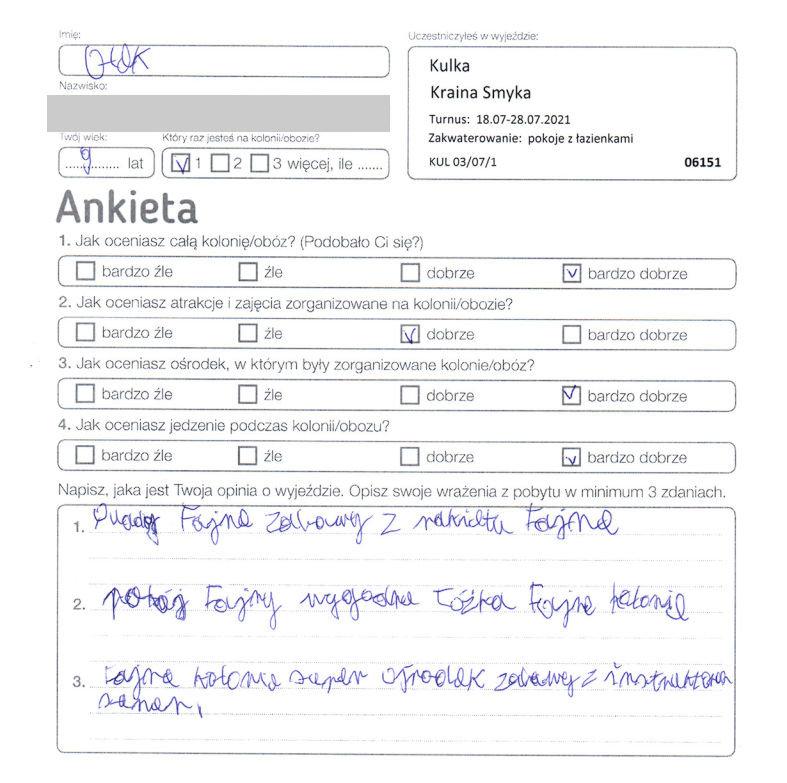 Imię:
Uczestniczyłeś w wyjeździe:
Kulka
Kraina Smyka
Nazwisko:
Turnus: 18.07-28.07.2021
Zakwaterowanie: pokoje z łazienkami
KUL 03/07/1 06151
Twój wiek: Który raz jesteś na kolonii/obozie?
9 lat 1 2 3 więcej, ile .......
Ankieta
1. Jak oceniasz całą kolonię/obóz? (Podobało Ci się?)
bardzo źle źle dobrze bardzo dobrze
2. Jak oceniasz atrakcje i zajęcia zorganizowane na kolonii/obozie?
bardzo źle źle dobrze bardzo dobrze
3. Jak oceniasz ośrodek, w którym były zorganizowane kolonie/obóz?
bardzo źle źle dobrze bardzo dobrze
4. Jak oceniasz jedzenie podczas kolonii/obozu?
bardzo źle źle dobrze bardzo dobrze
Napisz, jaka jest Twoja opinia o wyjeździe. Opisz swoje wrażenia z pobytu w minimum 3 zdaniach.
1. Fajne zabawy z Fajne
2. pokój Fajny wygodne łóżka Fajne kolonie
3. Fajne kolonie super ośrodek zabawy z